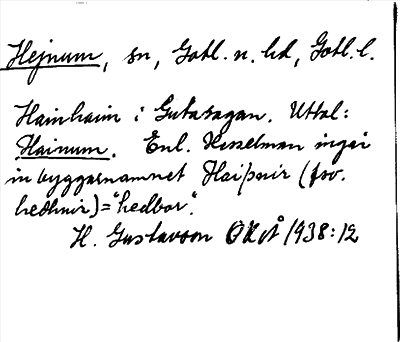 Hejnum, sn, Gotl. n. hd, Gotl. l.
Hainhaim i Gutasagan. Uttal:
Hainum. Enl. Hesselman ingår
inbyggarnamnet Haiþnir (fsv.
heðhnir) = "hedbor".
H. Gustavson OKÅ 1938:12